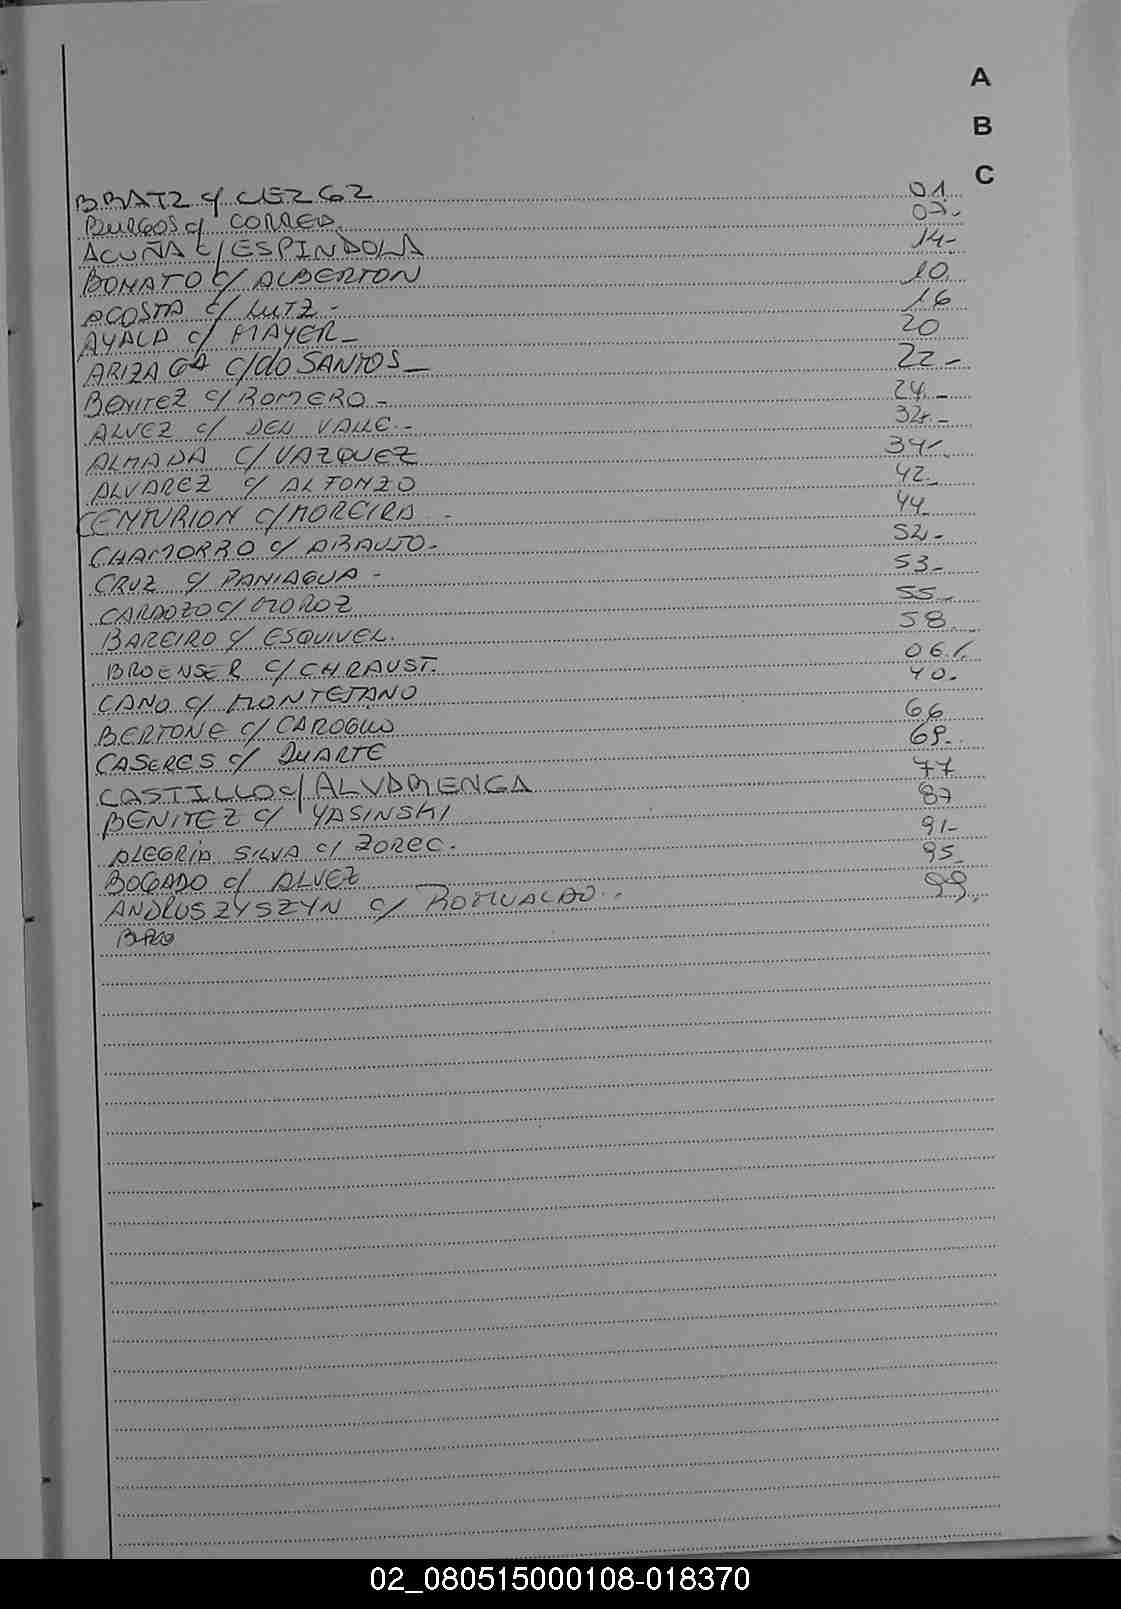 A
B
C
BRATZ c/ CLEZ GZ 01
BURGOS c/ CORREA. 07.-
ACUÑA c/ ESPINDOLA 14.-
BONATO c/ ALBERTON 10.
ACOSTA c/ LUTZ - 16
AYALA c/ MAYER - 20
ARIZAGA c/do SANTOS - 22 -
BENITEZ c/ ROMERO - 24.-
ALVEZ c/ DEL VALLE.- 32.-
ALMADA c/ VAZQUEZ 39.-
ALVAREZ c/ ALFONZO 42.-
CENTURION c/ MOREIRA - 44.-
CHAMORRO c/ ARAUJO - 52.-
CRUZ c/ PANIAGUA - 53.-
CARDOZO c/ MOROZ 55.-
BAREIRO c/ ESQUIVEL. 58.
BROENSER c/ CHRAUST. 06./.
CANO c/ MONTEJANO 40.
BERTONE c/ CAROGLIO 66
CASERES c/ DUARTE 69.-
CASTILLO c/ ALVARENGA 77
BENITEZ c/ YASINSKI 87
ALEGRIA SILVA c/ ZOREC. 91-
BOGADO c/ ALVEZ 95.
ANDRUSZYSZYN c/ ROMUALDO.. 99.
02_080515000108-018370